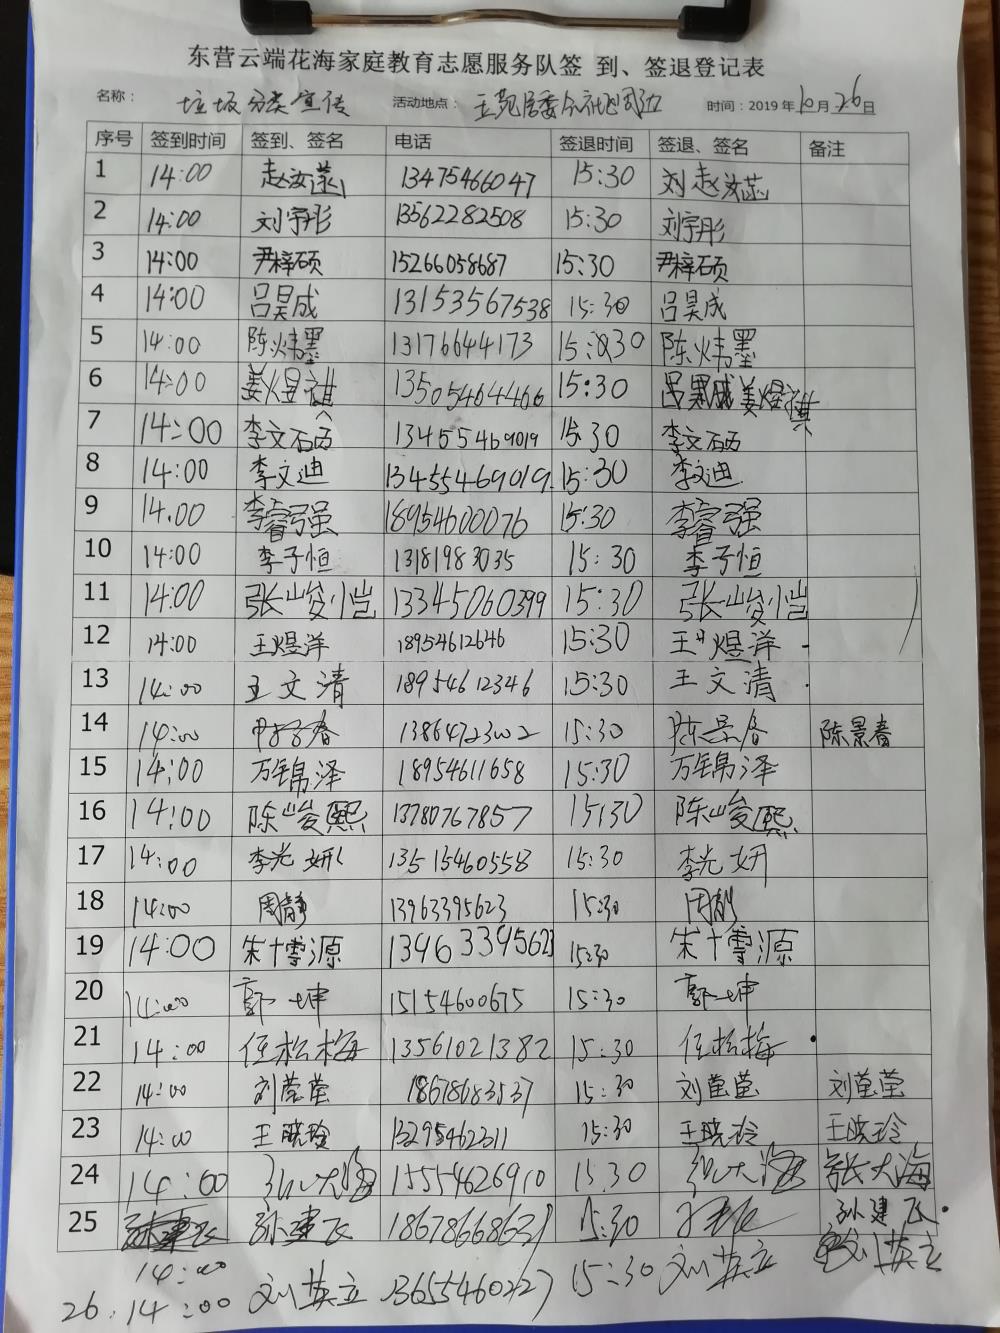 东营云端花海家庭教育志愿服务队签 到、签退登记表
名称： 垃圾分类宣传 活动地点： 王苑居委会社区周边 时间：2019 年 10 月 26 日
序号 签到时间 签到、签名 电话 签退时间 签退、签名 备注
1 14:00 赵汝 13475466047 15:30 赵汝
2 14:00 刘宇彤 13562282508 15:30 刘宇彤
3 14:00 尹梓硕 15266058687 15:30 尹梓硕
4 14:00 吕昊成 13153567538 15:30 吕昊成
5 14:00 陈炜墨 13176644173 15:30 陈炜墨
6 14:00 姜煜祺 13505464466 15:30 姜煜祺
7 14:00 李文硒 13455469019 15:30 李文硒
8 14:00 李文迪 13455469019 15:30 李文迪
9 14:00 李睿强 18954600076 15:30 李睿强
10 14:00 李子恒 13181983035 15:30 李子恒
11 14:00 张峻恺 13345060399 15:30 张峻恺
12 14:00 王煜洋 18954612646 15:30 王煜洋
13 14:00 王文清 18954612346 15:30 王文清
14 14:00 13864723002 15:30 陈景春 陈景春
15 14:00 万锦泽 18954611658 15:30 万锦泽
16 14:00 陈峻熙 13780767857 15:30 陈峻熙
17 14:00 李光妍 13515460558 15:30 李光妍
18 14:00 周静 13963395623 15:30 周静
19 14:00 宋博源 13963395623 15:30 宋博源
20 14:00 郭坤 15154600675 15:30 郭坤
21 14:00 任松梅 13561021382 15:30 任松梅
22 14:00 刘莹莹 18678683537 15:30 刘莹莹 刘莹莹
23 14:00 王晓玲 13295462311 15:30 王晓玲 王晓玲
24 14:00 张大海 15554626910 15:30 张大海 张大海
25 14:00 孙建飞 18678668637 15:30 孙建飞 孙建飞
26. 14:00 刘英立 13655460227 15:30 刘英立 刘英立